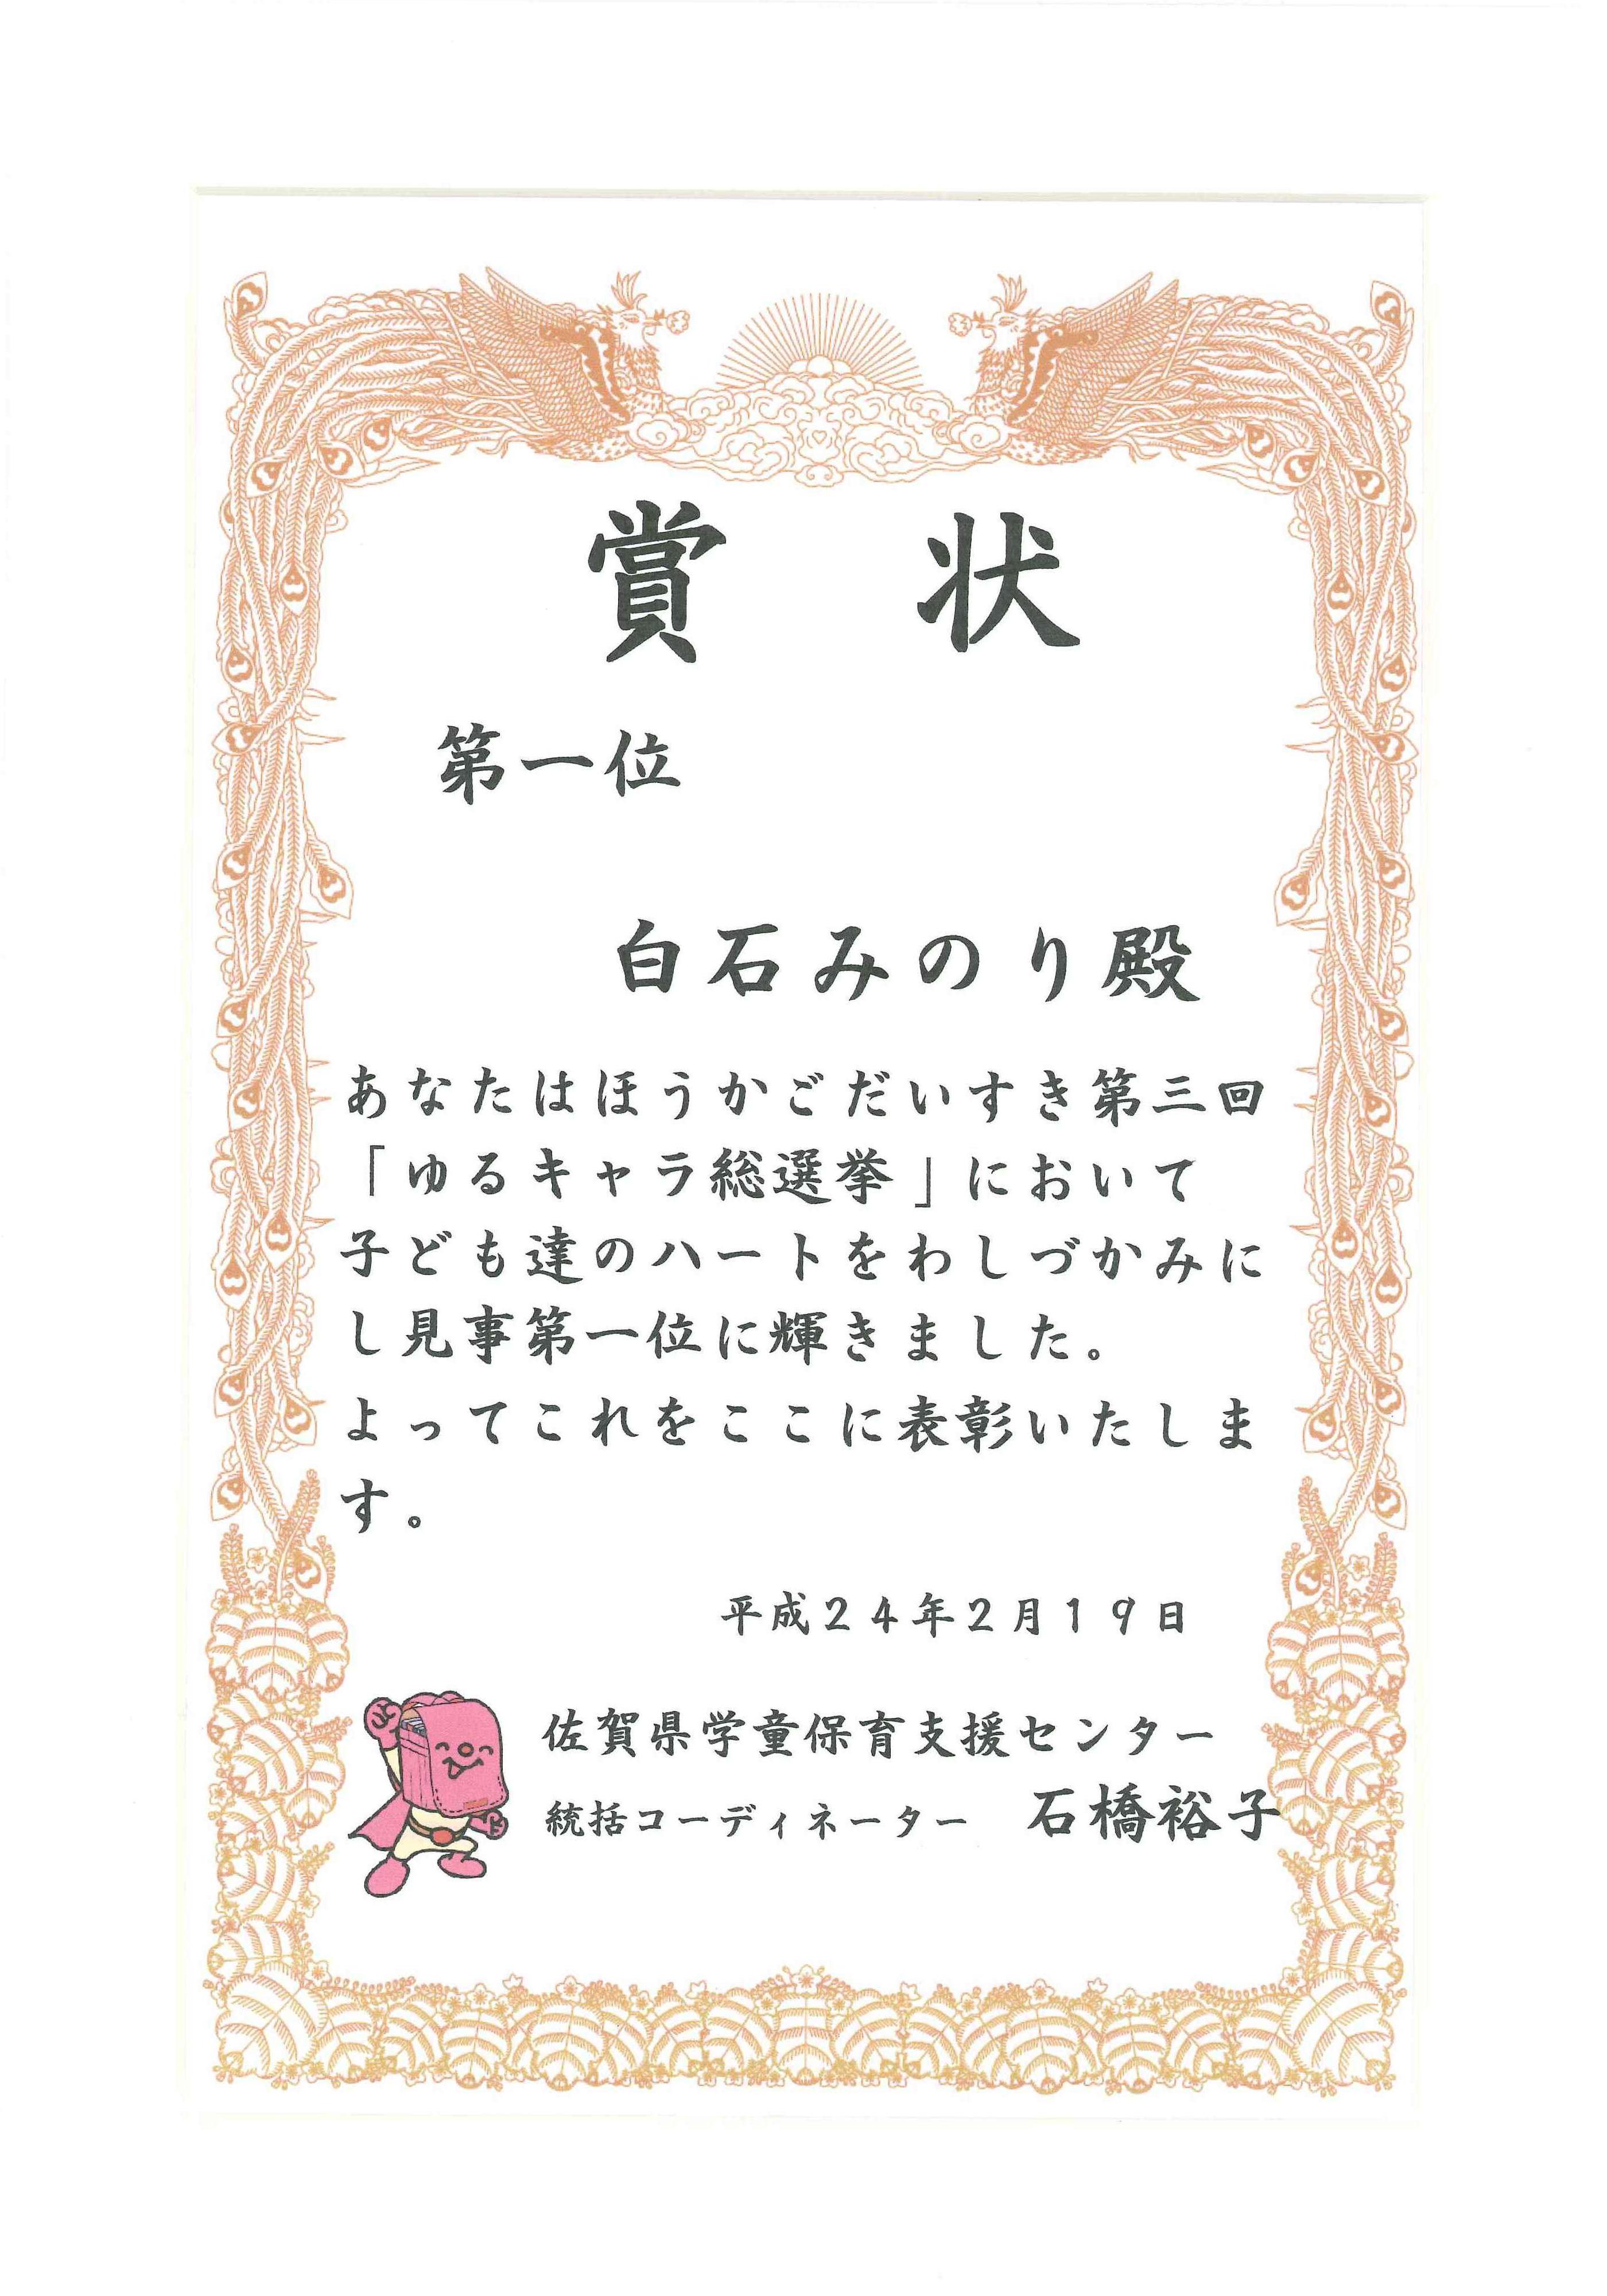 賞　状
第一位
白石みのり殿
あなたはほうかごだいすき第三回
「ゆるキャラ総選挙」において
子ども達のハートをわしづかみに
し見事第一位に輝きました。
よってこれをここに表彰いたしま
す。
平成２４年２月１９日
佐賀県学童保育支援センター
統括コーディネーター　石橋裕子